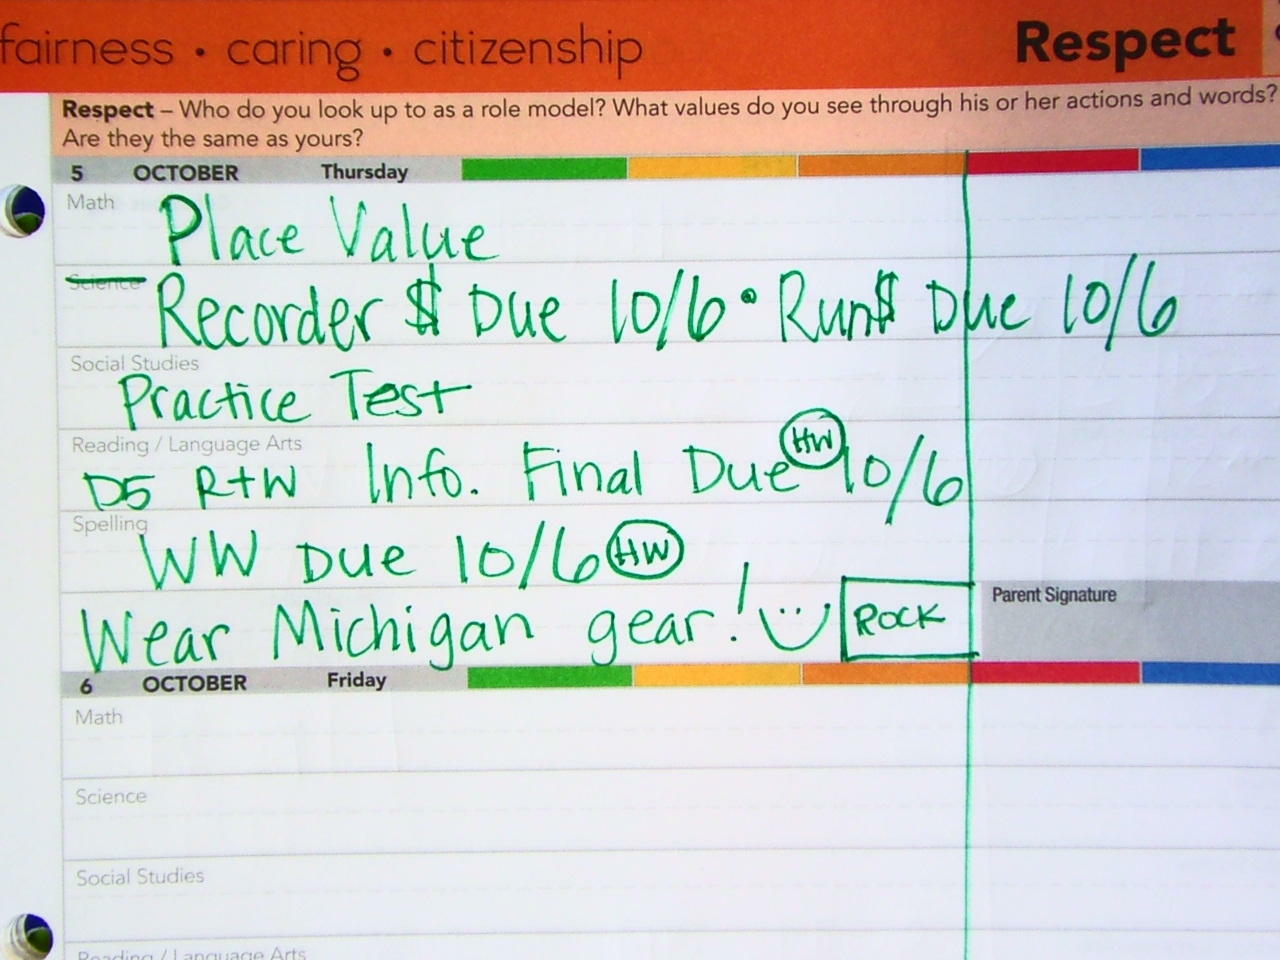 fairness • caring • citizenship Respect
Respect – Who do you look up to as a role model? What values do you see through his or her actions and words?
Are they the same as yours?
5 OCTOBER Thursday
Math Place Value
Science Recorder $ Due 10/6 • Run$ Due 10/6
Social Studies
Practice Test
Reading / Language Arts
D5 R+W Info. Final Due HW 10/6
Spelling
WW Due 10/6 HW
Wear Michigan gear! ROCK Parent Signature
6 OCTOBER Friday
Math
Science
Social Studies
Reading / Language Arts